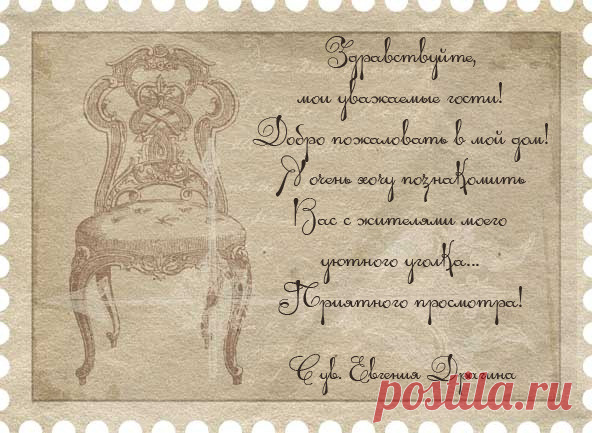 Здравствуйте,
мои уважаемые гости!
Добро пожаловать в мой дом!
Я очень хочу познакомить
Вас с жителями моего
уютного уголка...
Приятного просмотра!
С ув. Евгения
postila.ru